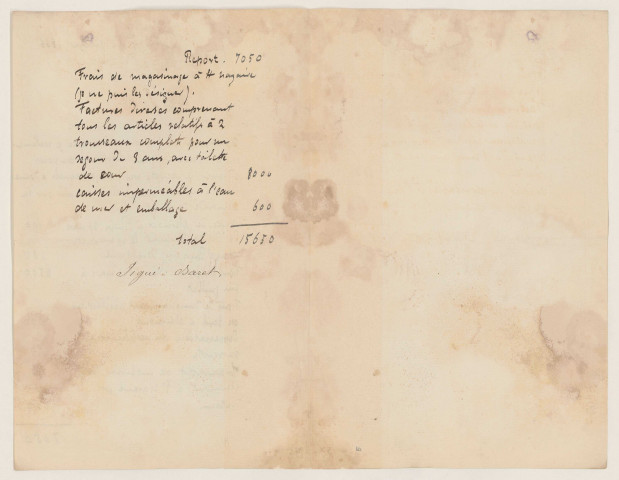 Report. 7050
Frais de magasinage à St Nazaire
(je ne puis les désigner).
Factures diverses comprenant
tous les articles relatifs à 2
trousseaux complets pour un
séjour de 3 ans, avec toilette
de cour 8000
caisses imperméables à l'eau
de mer et emballage 600
total 15650
Signé: Baret